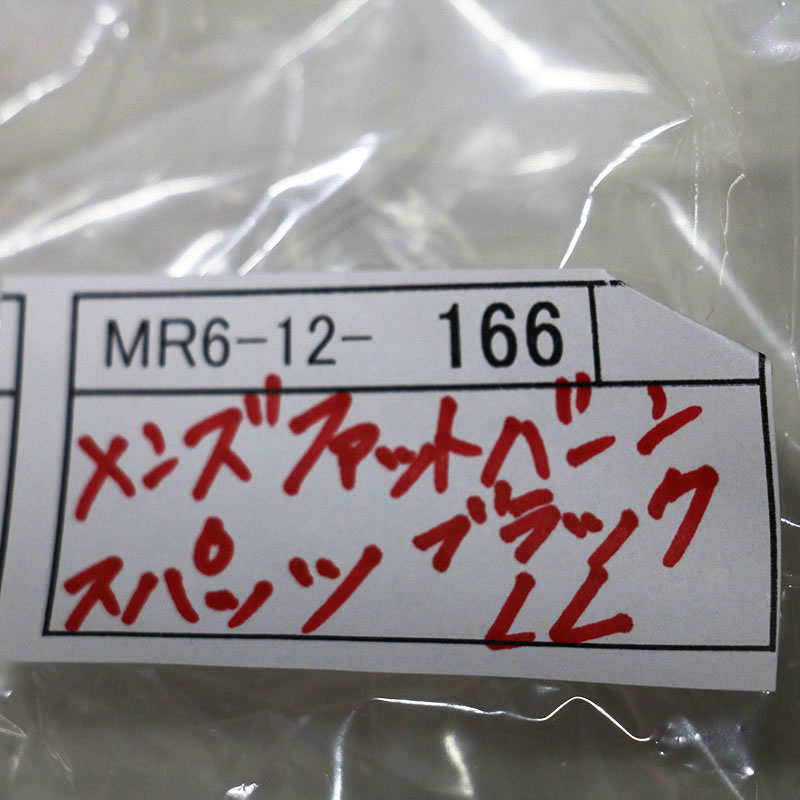 MR6-12- 166
メンズファットバーン
スパッツ ブラック
LL